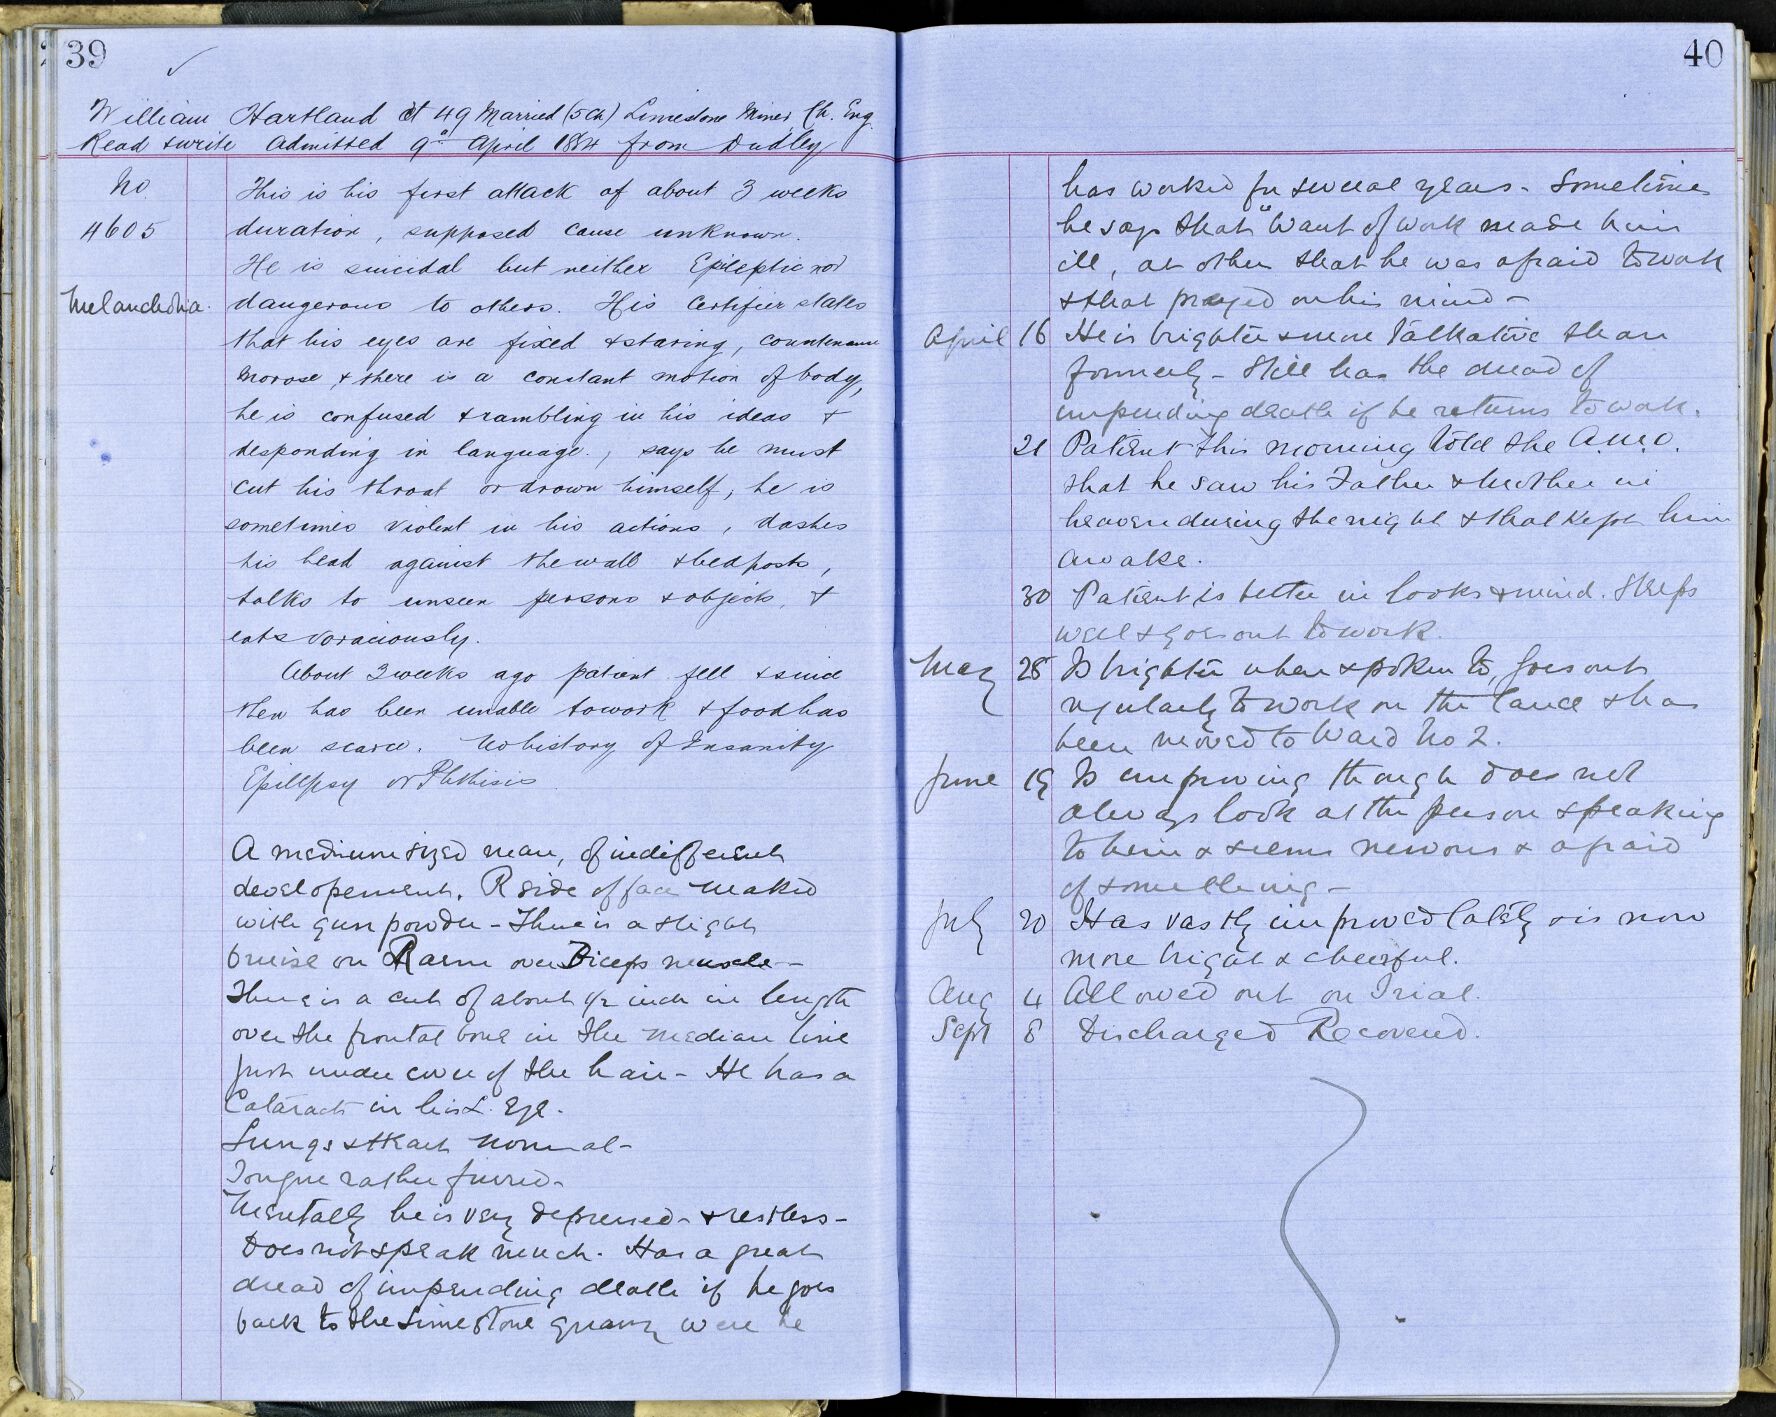 39
William Hartland æt 49 Married (5 Ch) Limestone Miner, Ch. Eng.
Read & write Admitted 9th April 1884 from Dudley
No.
4605
Melancholia.
This is his first attack of about 3 weeks
duration, supposed cause unknown.
He is suicidal but neither Epileptic nor
dangerous to others. His Certifier states
that his eyes are fixed & staring, countenance
morose, & there is a constant motion of body,
he is confused & rambling in his ideas &
desponding in language, says he must
cut his throat or drown himself, he is
sometimes violent in his actions, dashes
his head against the wall & bedposts,
talks to unseen persons & objects, &
eats voraciously.
About 3 weeks ago patient fell & since
then has been unable to work & food has
been scarce. No history of Insanity
Epilepsy or Phthisis
A medium sized man, of indifferent
developement. R side of face marked
with gun powder - There is a slight
bruise on R arm over Biceps muscle -
There is a cut of about 1/2 inch in length
over the frontal bone in the median line
just under cover of the hair - He has a
Cataract in his L. Eye.
Lungs & Heart normal -
Tongue rather furred -
Mentally he is very depressed - & restless -
Does not speak much. Has a great
dread of impending death if he goes
back to the Limestone quarry were he
40
has worked for several years - Sometimes
he says that "Want of work made him
ill, at others that he was afraid to work
& that preyed on his mind -
April 16 He is brighter & more talkative than
formerly - Still has the dread of
impending death if he returns to work.
21 Patient this morning told the A.M.O.
that he saw his Father & Mother in
heaven during the night & that kept him
awake.
30 Patient is better in looks & mind. Sleeps
well & goes out to work.
May 28 Is brighter when spoken to, goes out
regularly to work on the land & has
been moved to Ward No 2.
June 19 Is improving though does not
always look at the person speaking
to him & seems nervous & afraid
of something -
July 20 Has vastly improved lately & is now
more bright & cheerful.
Aug 4 Allowed out on Trial.
Sept 8 Discharged Recovered.